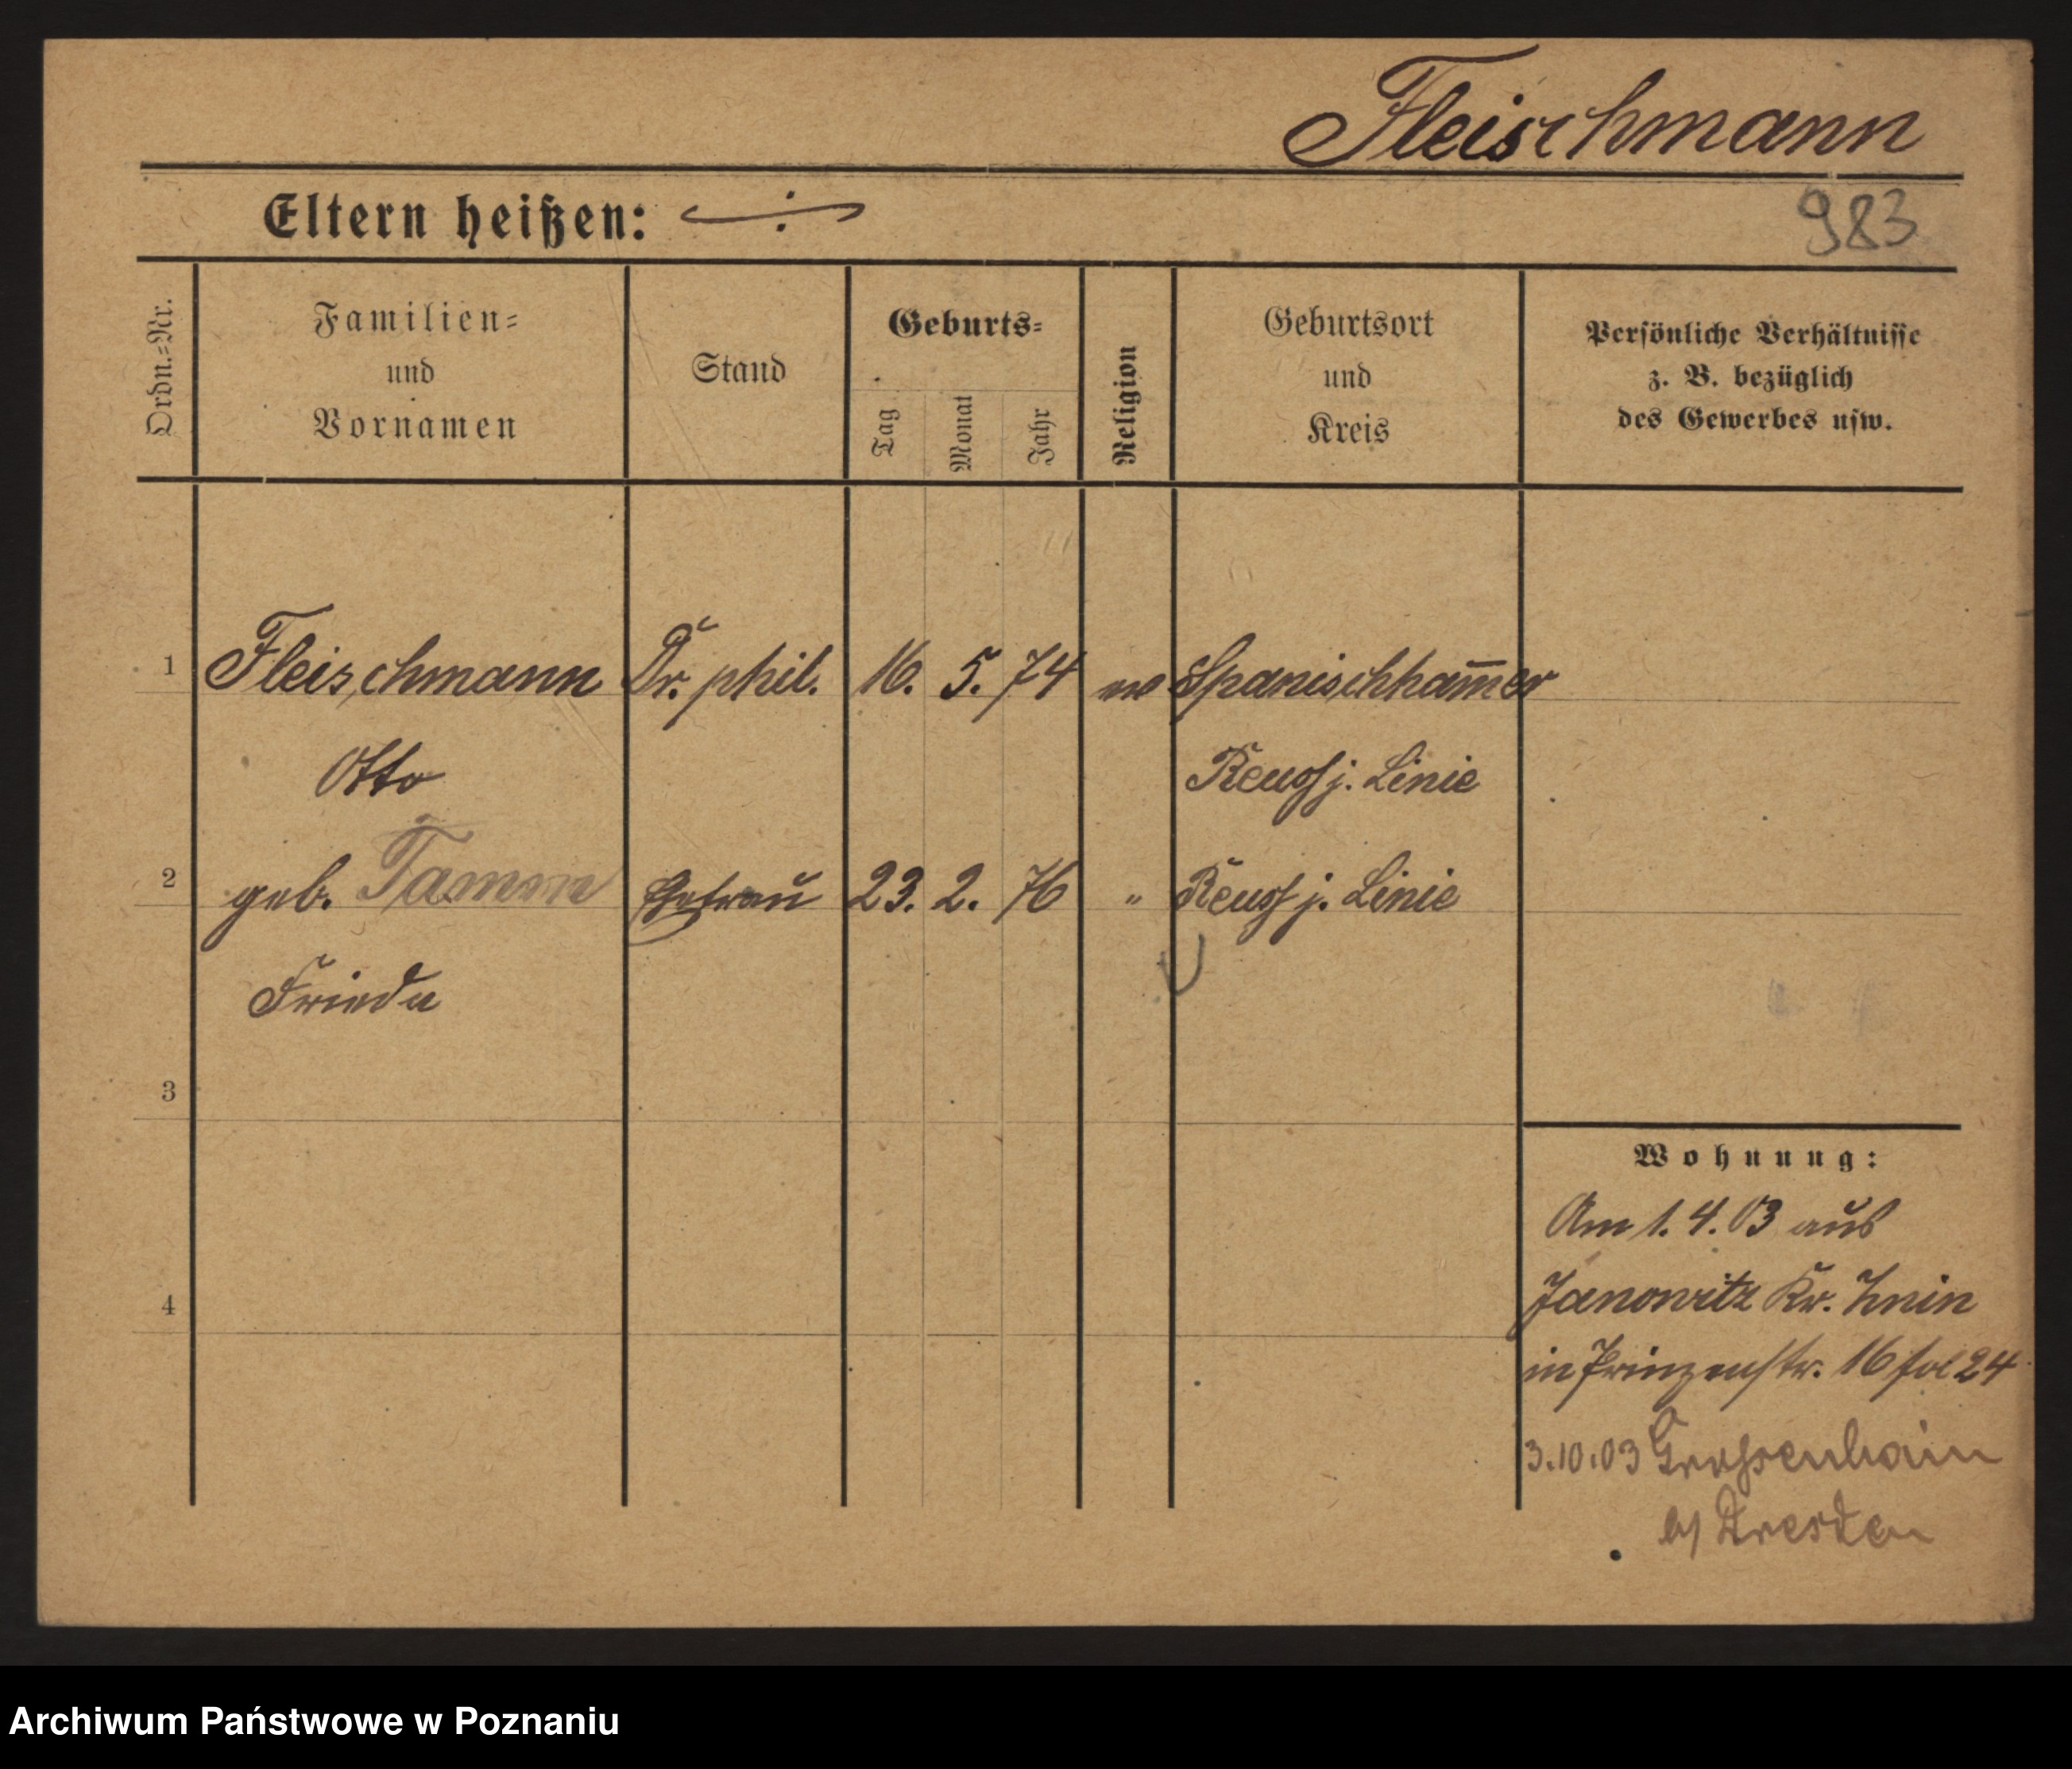 Fleischmann
Eltern heißen: ÷
983
Ordn.=Nr.
Familien=
und
Vornamen
Stand
Geburts=
Tag
Monat
Jahr
Religion
Geburtsort
und
Kreis
Persönliche Verhältnisse
z. B. bezüglich
des Gewerbes usw.
1 Fleischmann Dr. phil. 16. 5. 74 ev Spanischham̄er
Otto Reuss j. Linie
2 geb. Ehefrau 23. 2. 76 " Reuss j. Linie
Frieda
3
4
Wohnung:
Am 1. 4. 03 aus
Janowitz Kr. Znin
in Prinzenstr. 16 fol 24
3.10.03 Grossenhain
b/ Dresden
Archiwum Państwowe w Poznaniu